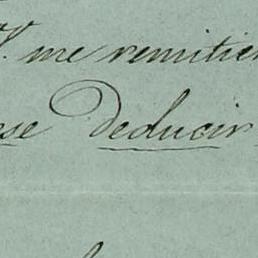 V. me remitier
se Deducir